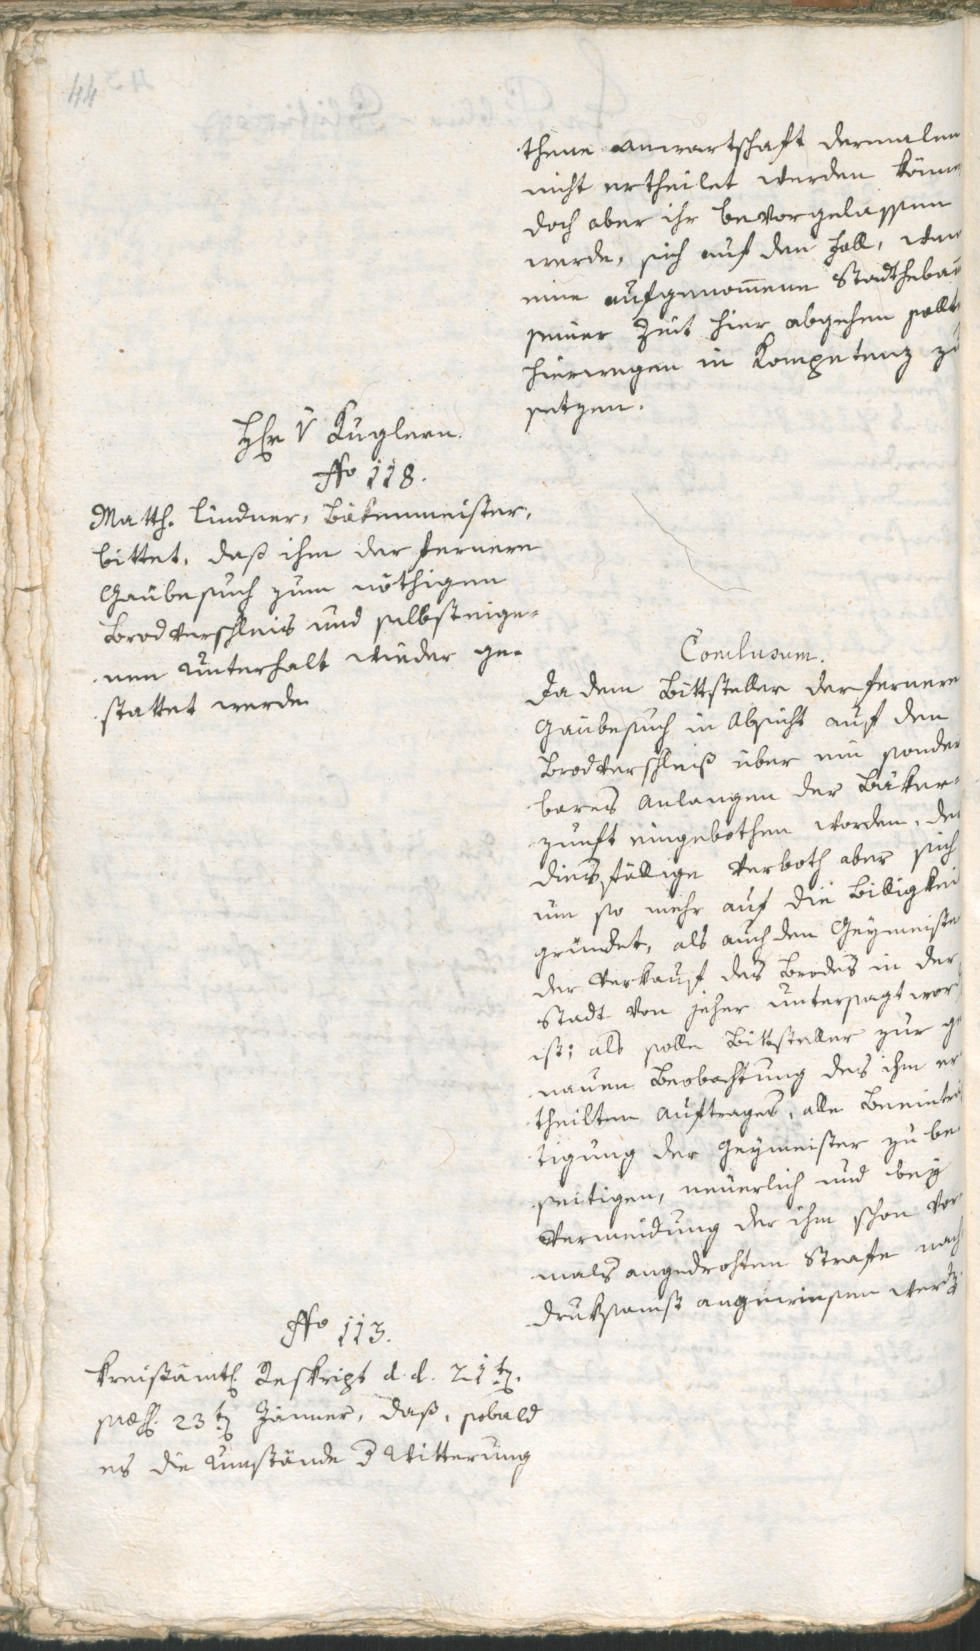 44
thene Anwartschaft dermalen
nicht ertheilet werden könne
doch aber ihr bevorgelassen
werde, sich auf den Fall, wan
eine aufgenom̅ene Stadthebam̅
seiner Zeit hier abgehen sollte
hierwegen in Kompetenz zu
setzen.
H̅r v Kuglern.
ffo 118.
Matth. Lindner, Bäkenmeister,
bittet, daß ihm der fernere
Gäubesuch zum nöthigen
Brodverschleis und selbsteige-
nen Unterhalt wieder ge-
stattet werde.
Conclusum.
Da dem Bittsteller der fernere
Gäubesuch in Absicht auf den
Brodverschleiß über ein sonder
bares Anlangen der Bäker-
zunft eingebothen worden, der
diesfällige Verboth aber sich
um so mehr auf die Billigkei
gründet, als auch den Geymeiste
der Verkauf des Brodes in der
Stadt von jeher untersagt wor
ist; als solle Bittsteller zur ge
nauen Beobachtung des ihm er
theilten Auftrages, alle Beeinträ
tigung der Geymeister zu be-
seitigen, neuerlich und bey
Vermeidung der ihm schon vor
mals angedrohten Strafe nach
druksamst angewiesen werden
ffo 113.
Kreisämtl. Reskript d. d. 21ten
præs. 23ten Jänner, daß, sobald
es die Umstände d Witterung